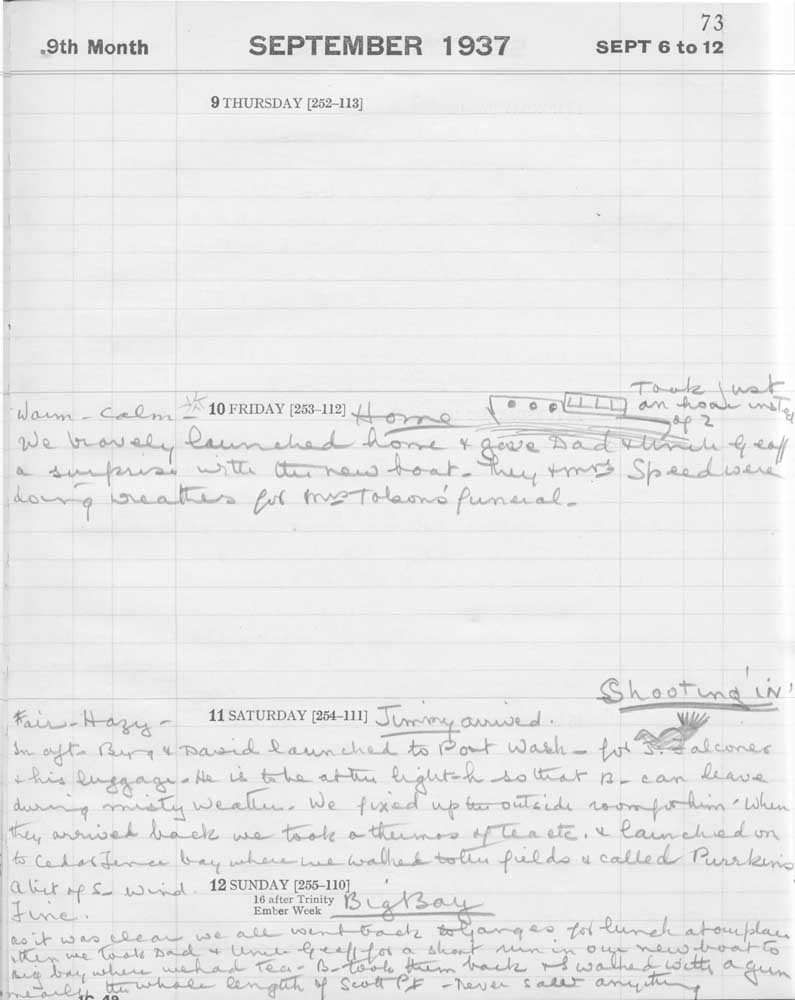 73
9th Month SEPTEMBER 1937 SEPT 6 to 12
9 THURSDAY [252–113]
Took just
Warm – Calm – 10 FRIDAY [253–112] Home an hour instead
of 2
We bravely launched home & gave Dad & Uncle Geoff
a surprise with the new boat – They & Mrs Speed were
doing wreathes for Mrs Tolson's funeral –
Shooting 'IN'
Fair – Hazy – 11 SATURDAY [254–111] Jimmy arrived.
In aft – & David launched to Port Wash – for J. Falconer
& his luggage – He is to be at the light-h so that B – can leave
during misty weather. We fixed up the outside room for him. When
they arrived back we took a thermos of tea etc. & launched on
to Cedar Fence bay where we walked to the fields & called
A bit of S – wind. 12 SUNDAY [255–110]
16 after Trinity Big Bay
Fine. Ember Week
as it was clear we all went back to Ganges for lunch at our place
then we took Dad & Uncle Geoff for a short run in our new boat to
Big bay where we had tea – B – took them back & I walked with a gun
nearly the whole length of Scott Pt – Never saw anything